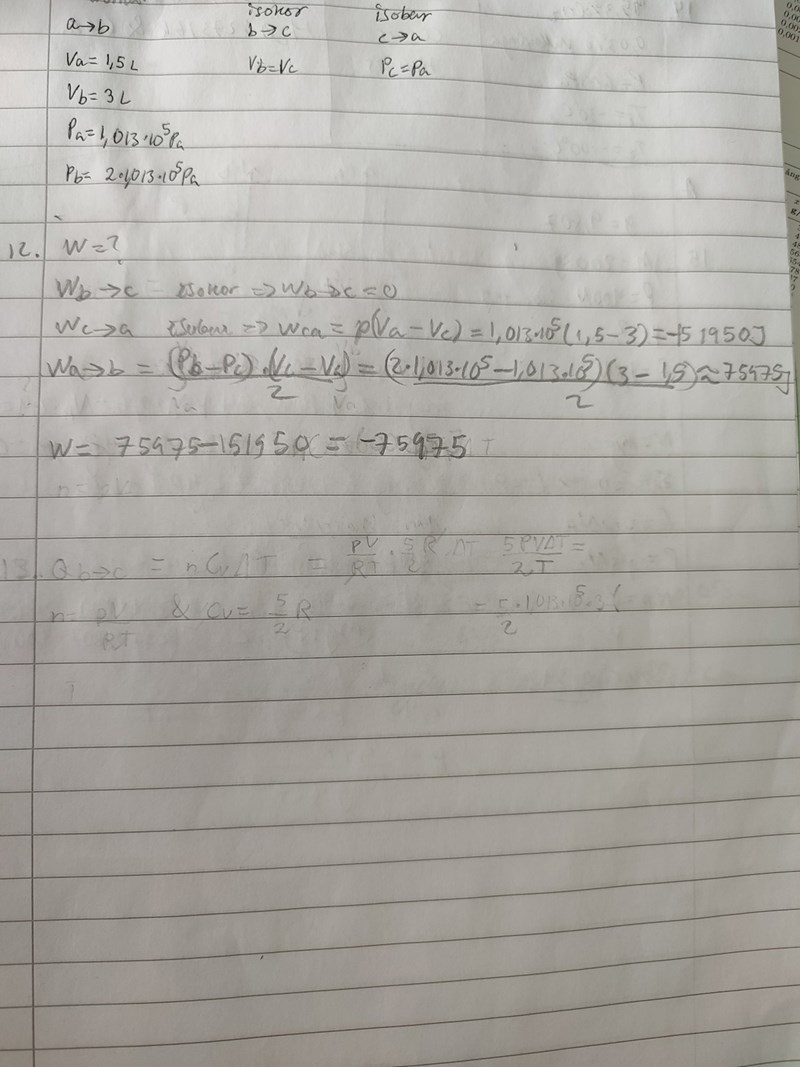 isokor isobar
a→b b→c c→a
Va = 1,5 L Vb=Vc Pc=Pa
Vb = 3 L
Pa = 1,013·10⁵Pa
Pb = 2·1,013·10⁵Pa
12. W=?
Wb→c isokor => Wb→c = 0
Wc→a isobar => Wca = p(Va-Vc) = 1,013·10⁵(1,5-3) = -151950J
Wa→b = (Pb-Pc)·(Vc-Va)/2 = (2·1,013·10⁵-1,013·10⁵)(3-1,5)/2 ≈ 75975J
W = 75975-151950 = -75975
13. Qb→c = nCvΔT = pV/RT · 5/2 R ΔT 5PVΔT/2T =
n = pV/RT & Cv = 5/2 R